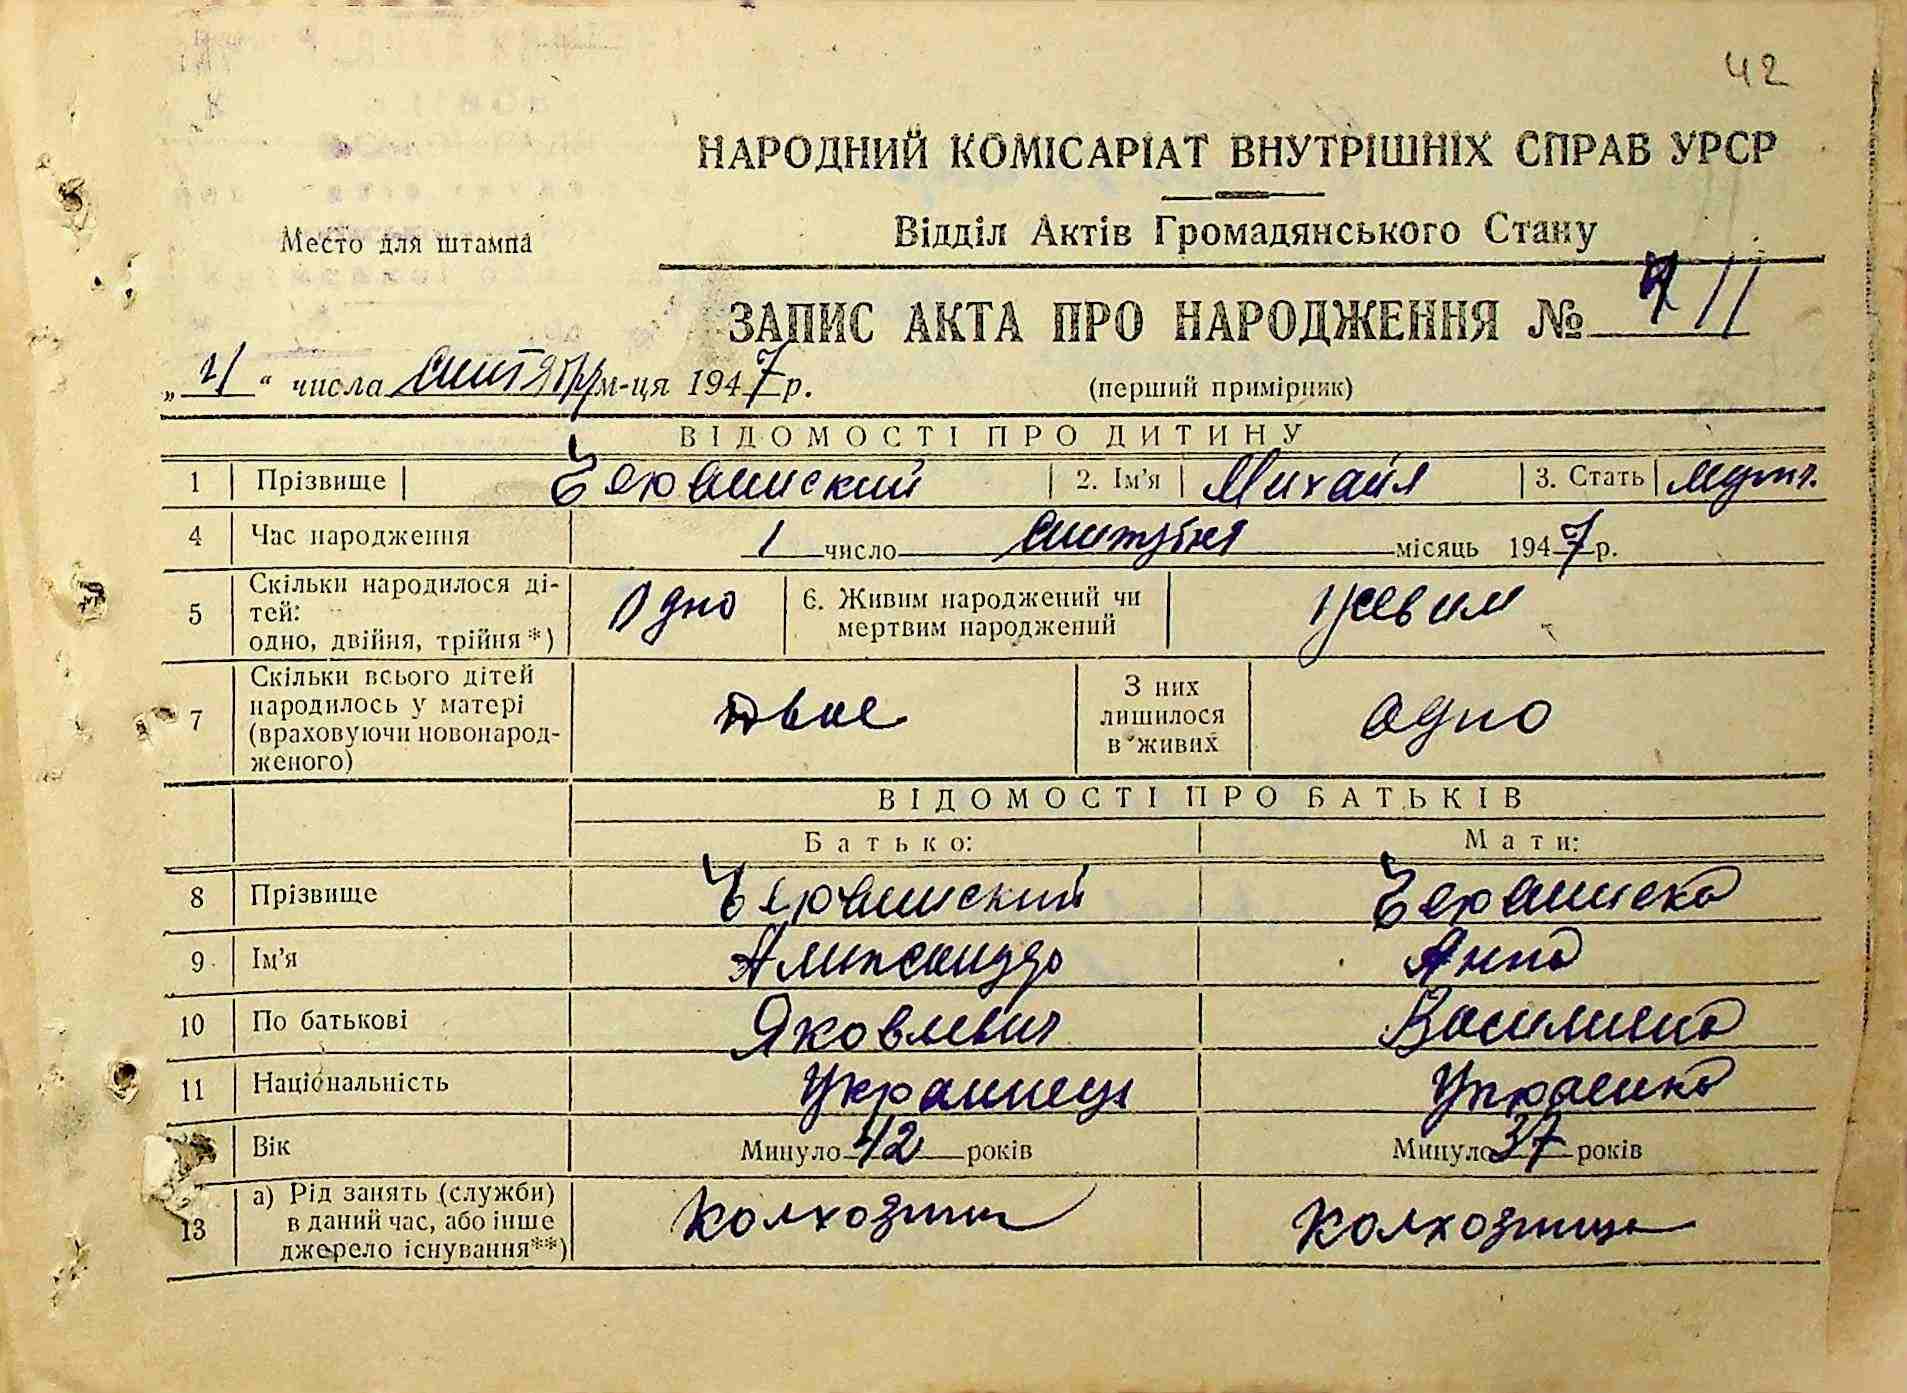 42
НАРОДНИЙ КОМІСАРІАТ ВНУТРІШНІХ СПРАВ УРСР
Место для штампа
Відділ Актів Громадянського Стану
ЗАПИС АКТА ПРО НАРОДЖЕННЯ № 11
" " числа м-ця 1947 р. (перший примірник)
ВІДОМОСТІ ПРО ДИТИНУ
1 Прізвище 2. Ім'я Михайл 3. Стать
4 Час народження 1 число місяць 1947 р.
5 Скільки народилося ді-
тей:
одно, двійня, трійня *) Одно 6. Живим народжений чи
мертвим народжений живим
7 Скільки всього дітей
народилось у матері
(враховуючи новонарод-
женого) двое З них
лишилося
в живих одно
ВІДОМОСТІ ПРО БАТЬКІВ
Батько: Мати:
8 Прізвище
9 Ім'я Александр Анна
10 По батькові Яковлевич
11 Національність Украинець Украинка
Вік Минуло 42 років Минуло 37 років
13 а) Рід занять (служби)
в даний час, або інше
джерело існування**) Колхозник Колхозница